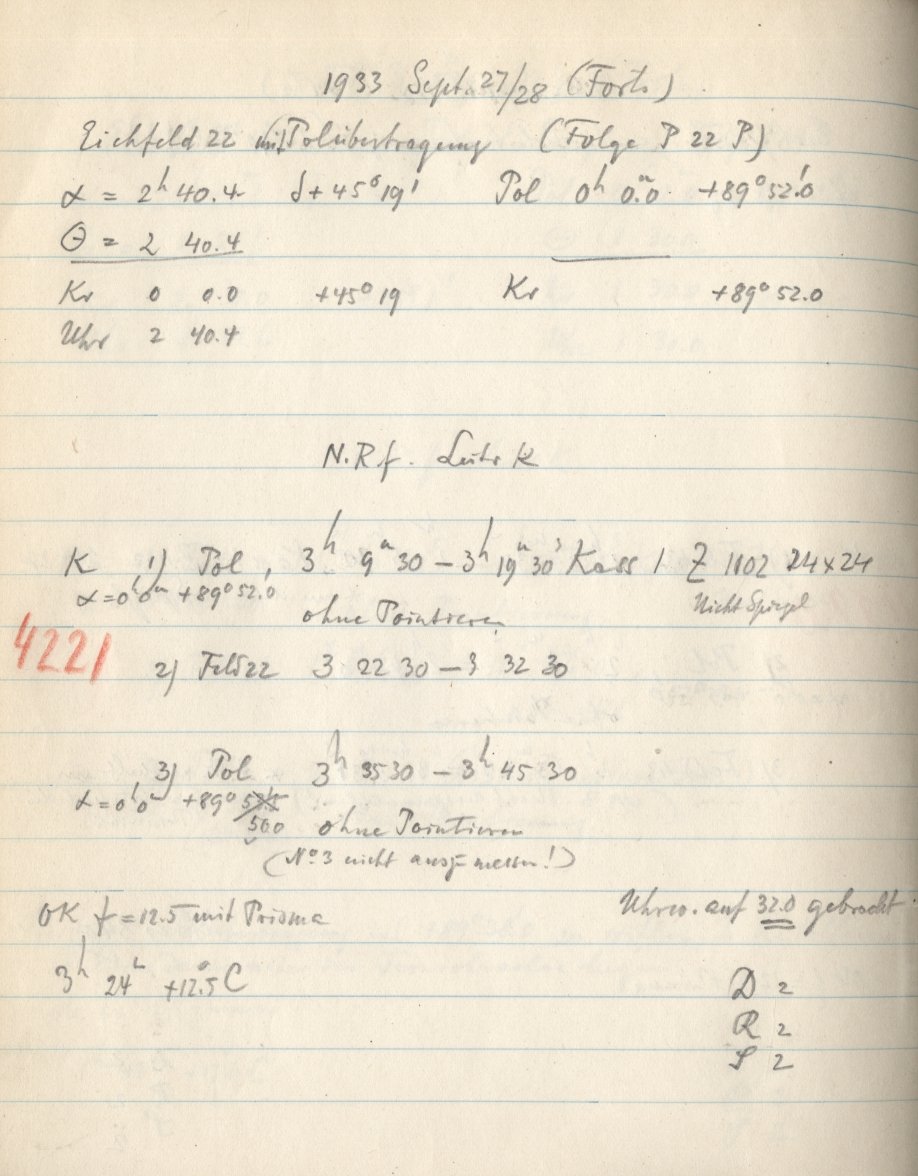 1933 Sept. 27/28 (Forts.)
Eichfeld 22 mit Polübertragung (Folge P 22 P)
α = 2h 40.4 δ + 45° 19' Pol 0h 0.m0 +89° 52.'0
Θ = 2 40.4
Kr 0 0.0 +45° 19 Kr +89° 52.0
Uhr 2 40.4
N.R f.
K 1) Pol, 3h 9m 30 – 3h 19m 30s Kass 1 Z 1102 24×24
α = 0h 0m +89° 52.'0 Nicht Spiegel
ohne Pointieren
4221
2) Feld 22 3 22 30 – 3 32 30
3) Pol 3h 35 30 – 3h 45 30
α = 0h 0m +89° 52.5
50.0 ohne Pointieren
(No 3 nicht ausgemessen!)
OK f = 12.5 mit Prisma Uhrw. auf 32.0 gebracht
3h 24m +12.°5 C
D 2
R 2
S 2